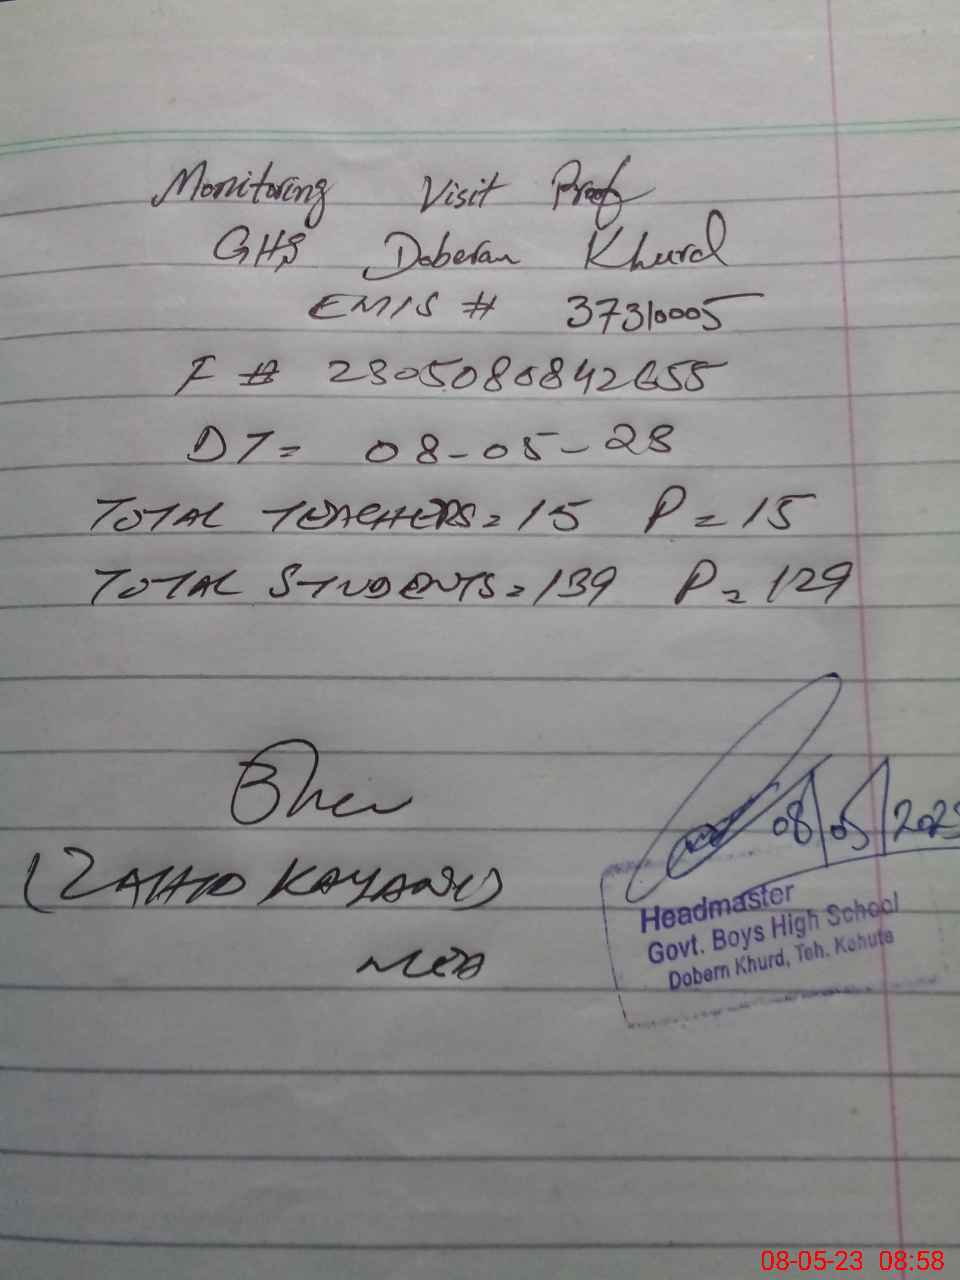 Monitoring Visit Proof
GHS Doberan Khurd
EMIS # 37310005
F # 2305080842655
DT= 08-05-23
TOTAL TEACHERS = 15 P = 15
TOTAL STUDENTS = 139 P = 129
(ZAHID KAYANI)
MEA
08/05/2023
Headmaster
Govt. Boys High School
Dobern Khurd, Teh. Kahuta
08-05-23 08:58